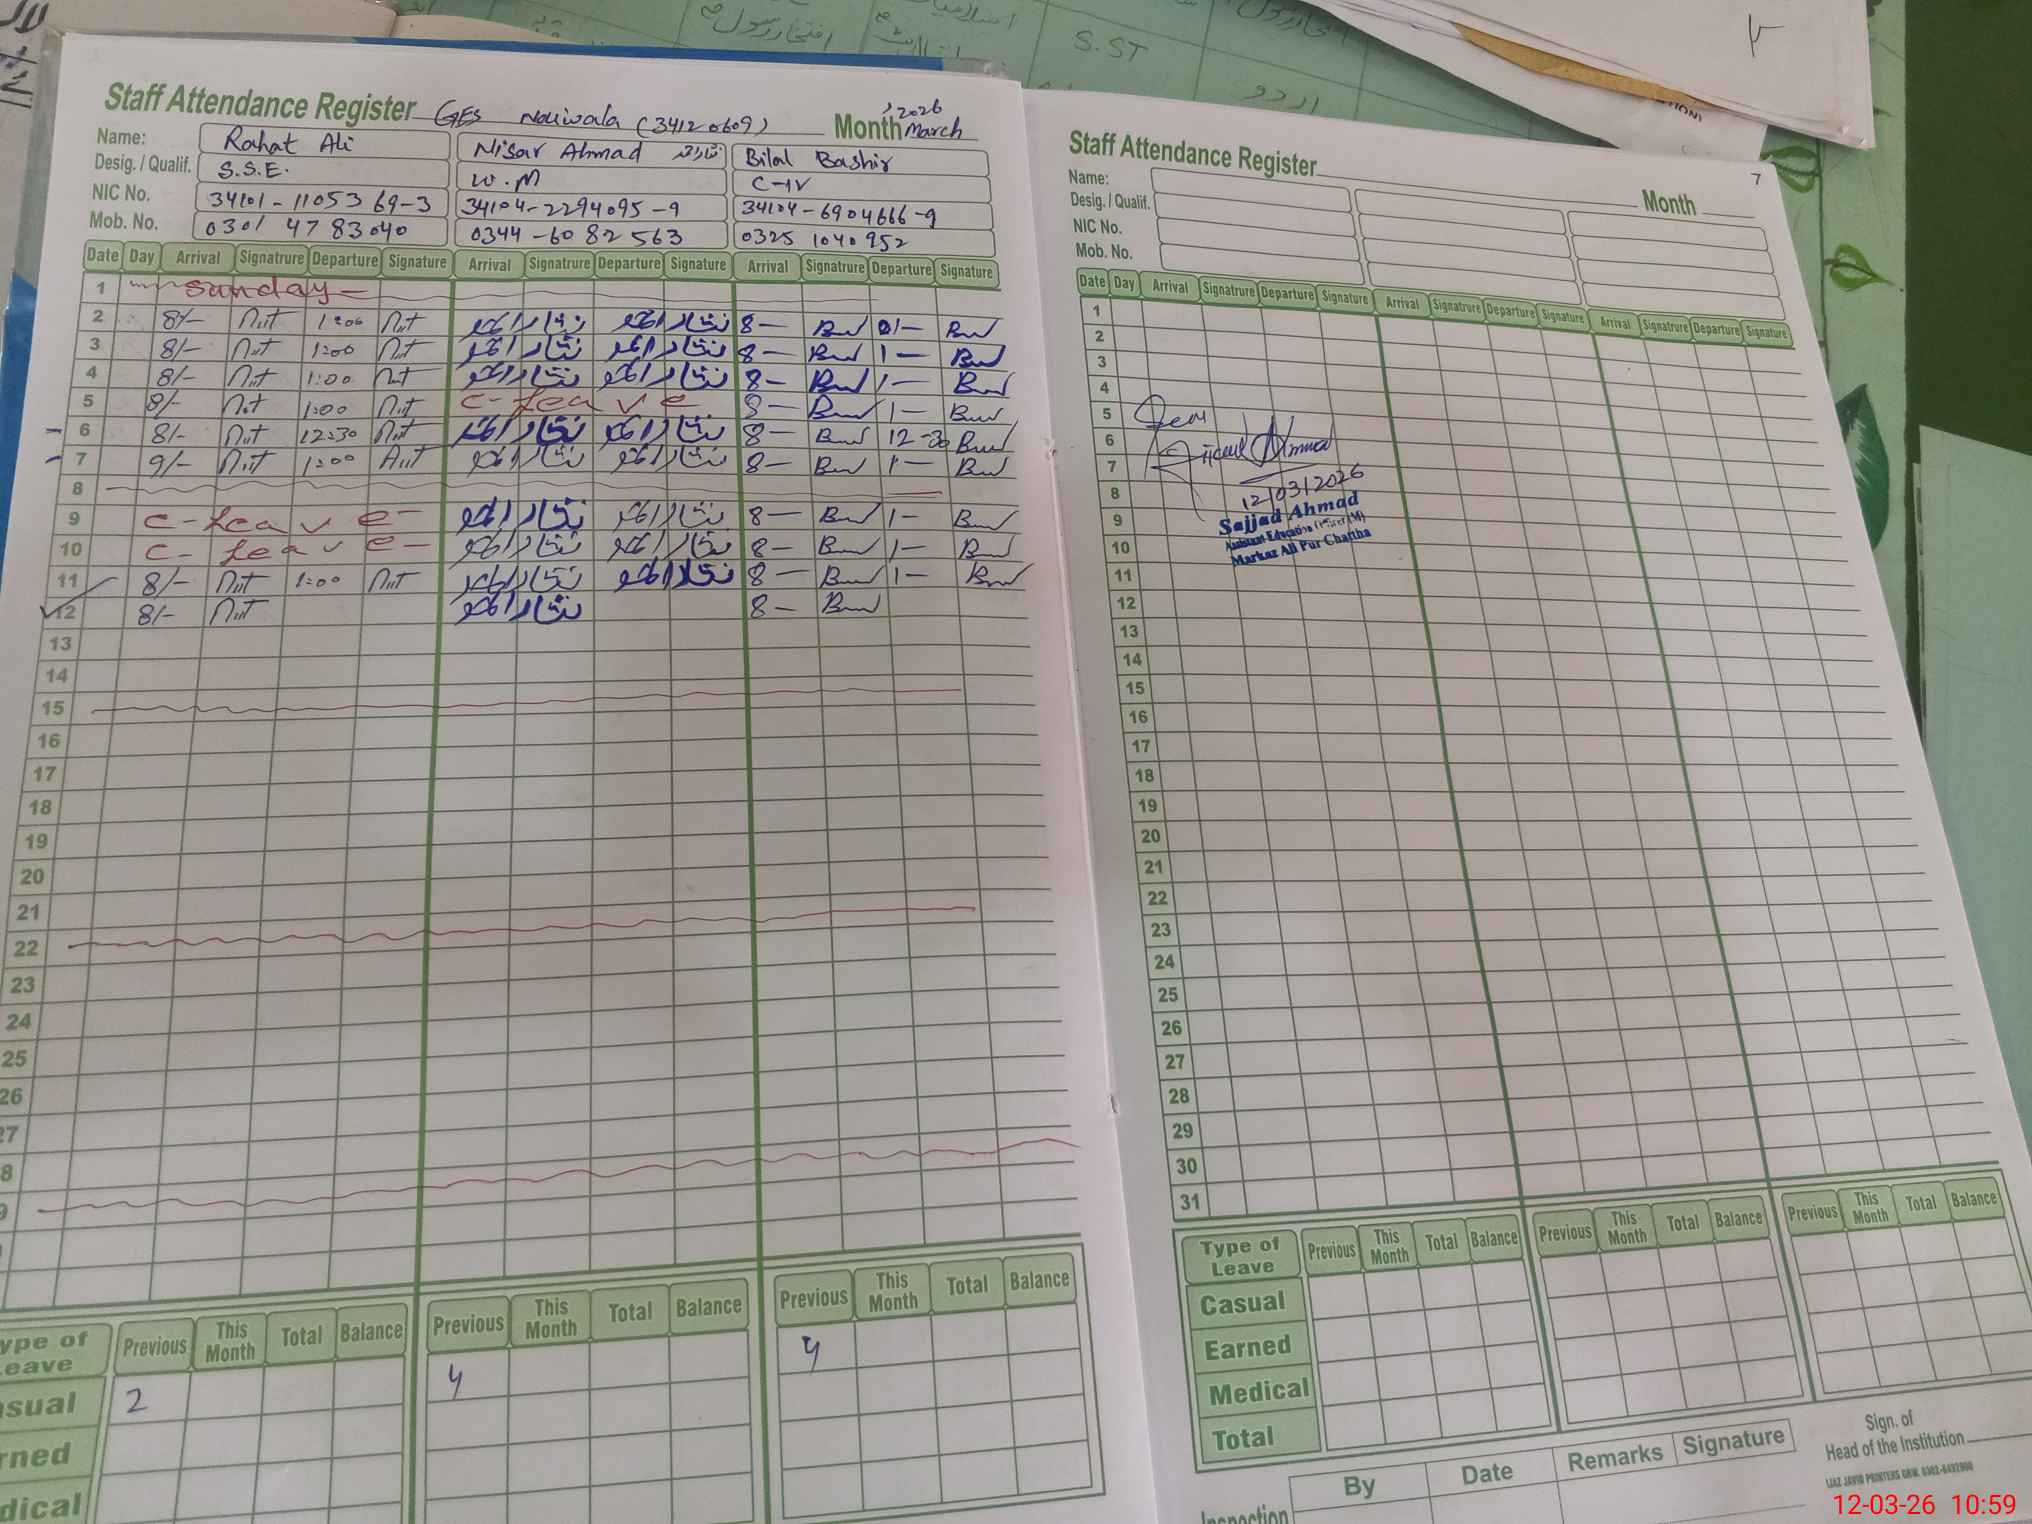 S.ST
اردو
Staff Attendance Register GES Nouiwala (34120609) Month March 2026
Name: Rahat Ali Nisar Ahmad Bilal Bashir
Desig. / Qualif. S.S.E. W.M C-IV
NIC No. 34101-1105369-3 34104-2294095-9 34104-6904666-9
Mob. No. 0301 4783040 0344-6082563 0325 1040952
Date Day Arrival Signatrure Departure Signature Arrival Signatrure Departure Signature Arrival Signatrure Departure Signature
1 Sunday
2 8/- 1:00 نثار احمد نثار احمد 8- 1-
3 8/- 1:00 نثار احمد نثار احمد 8- 1-
4 8/- 1:00 نثار احمد نثار احمد 8- 1-
5 8/- 1:00 C-Leave 8- 1-
6 8/- 12:30 نثار احمد نثار احمد 8- 12-30
7 9/- 1:00 نثار احمد نثار احمد 8- 1-
8
9 C-Leave- نثار احمد نثار احمد 8- 1-
10 C-Leave- نثار احمد نثار احمد 8- 1-
11 8/- 1:00 نثار احمد نثار احمد 8- 1-
12 8/- نثار احمد 8-
13
14
15
16
17
18
19
20
21
22
23
24
25
26
27
8
9
ype of Leave Previous This Month Total Balance Previous This Month Total Balance Previous This Month Total Balance
asual 2 4 4
rned
dical
7
Staff Attendance Register Month
Name:
Desig. / Qualif.
NIC No.
Mob. No.
Date Day Arrival Signatrure Departure Signature Arrival Signatrure Departure Signature Arrival Signatrure Departure Signature
1
2
3
4
5 Seen
6 Sajjad Ahmad
7
8 12/03/2026
9 Sajjad Ahmad
10 Assistant Education Officer (M)
11 Markaz Ali Pur Chattha
12
13
14
15
16
17
18
19
20
21
22
23
24
25
26
27
28
29
30
31
Type of Leave Previous This Month Total Balance Previous This Month Total Balance Previous This Month Total Balance
Casual
Earned
Medical
Total
By Date Remarks Signature
Inspection
Sign. of
Head of the Institution
IJAZ JAVID PRINTERS GRW. 0302-6492900
12-03-26 10:59